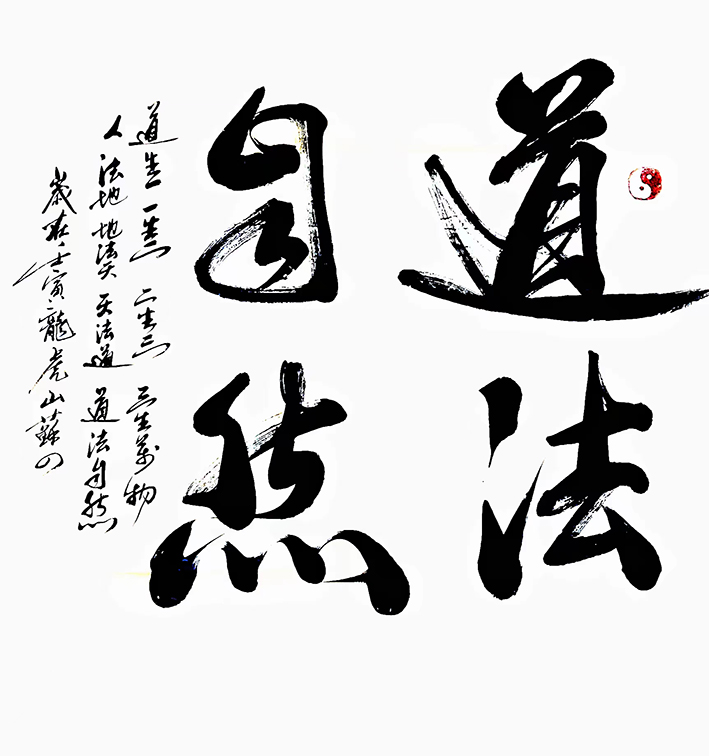 道法
自然
道生一 一生二 二生三 三生萬物
人法地 地法天 天法道 道法自然
歲在壬寅龍虎山蘇